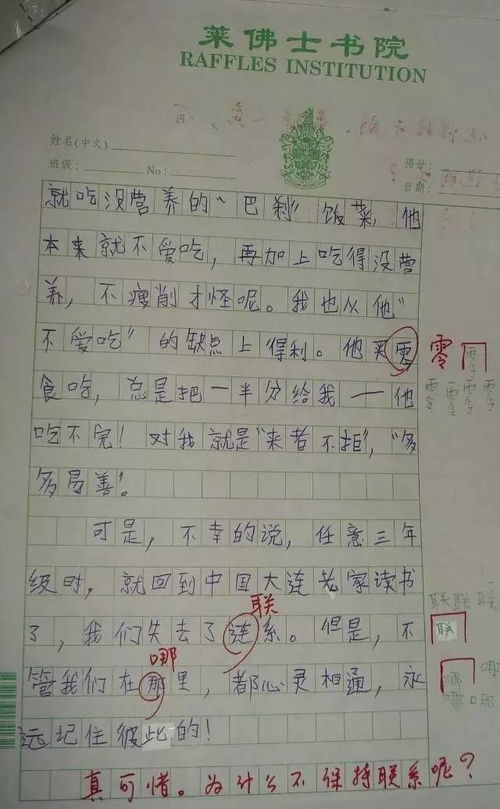 莱佛士书院
RAFFLES INSTITUTION
姓名(中文)
班级: No:
得分:
日期:
就吃没营养的“巴刹”饭菜,他
本来就不爱吃,再加上吃得没营
养,不瘦削才怪呢。我也从他“
不爱吃”的缺点上得利。他买雪 零
食吃,总是把一半分给我——他
吃不完!对我就是“来者不拒”,“多
多易善”。
可是,不幸的说,任意三年
级时,就回到中国大连老家读书
联 联联联
了,我们失去了连系。但是,不 联
哪
管我们在那里,都心灵相通,永 哪
哪哪
远记住彼此的!
真可惜。为什么不保持联系呢?